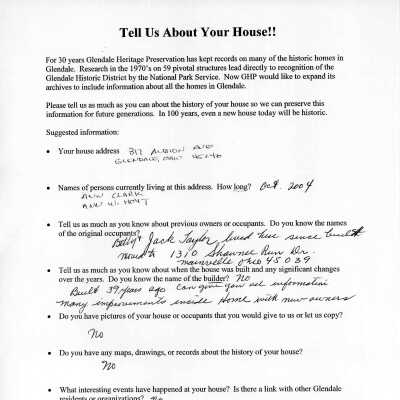 Tell Us About Your House!!
For 30 years Glendale Heritage Preservation has kept records on many of the historic homes in
Glendale. Research in the 1970's on 59 pivotal structures lead directly to recognition of the
Glendale Historic District by the National Park Service. Now GHP would like to expand its
archives to include information about all the homes in Glendale.
Please tell us as much as you can about the history of your house so we can preserve this
information for future generations. In 100 years, even a new house today will be historic.
Suggested information:
• Your house address 317 ALBION AVE
GLENDALE, OHIO 45246
• Names of persons currently living at this address. How long? Oct. 2004
ANN CLARK
ANN W. HOYT
• Tell us as much as you know about previous owners or occupants. Do you know the names
of the original occupants?
Betty & Jack Taylor, lived here since built
moved to 1310 Shawnee Run Dr.
Maineville Ohio 45039
• Tell us as much as you know about when the house was built and any significant changes
over the years. Do you know the name of the builder? No
Built 39 years ago can give you all information
Many improvements inside Home with new owners
• Do you have pictures of your house or occupants that you would give to us or let us copy?
No
• Do you have any maps, drawings, or records about the history of your house?
No
• What interesting events have happened at your house? Is there a link with other Glendale
residents or organizations? No